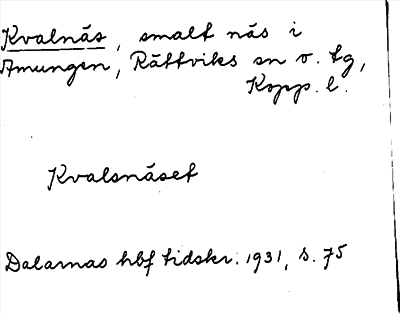 Kvalnäs, smalt näs i
Amungen, Rättviks sn o. tg,
Kopp. l.
Kvalsnäset
Dalarnas hbf tidskr. 1931, s. 75